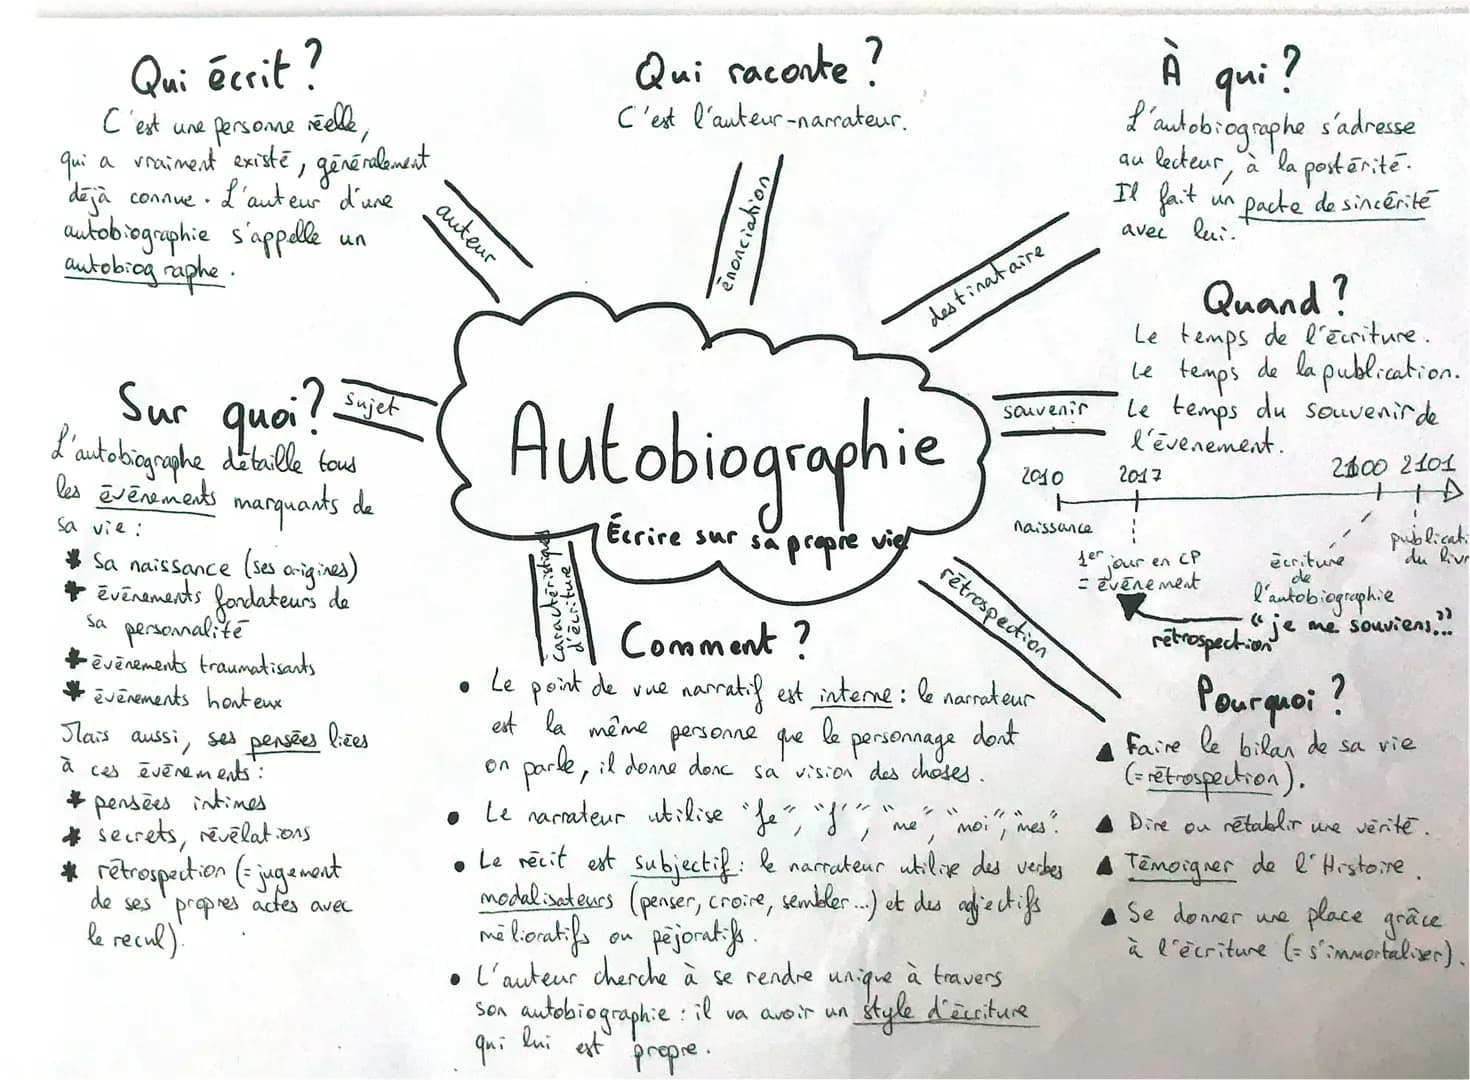 Qui écrit ?
C'est une personne réelle,
qui a vraiment existé, généralement
déjà connue. L'auteur d'une
autobiographie s'appelle un
autobiographe.
auteur
Qui raconte ?
C'est l'auteur-narrateur.
énonciation
À qui ?
L'autobiographe s'adresse
au lecteur, à la postérité.
Il fait un pacte de sincérité
avec lui.
destinataire
Quand ?
Le temps de l'écriture.
Le temps de la publication.
Le temps du souvenir de
l'évenement.
souvenir
2010 2017 2100 2101
naissance
1er jour en CP
= événement
écriture
de
l'autobiographie
"je me souviens..."
publicat
du livr
rétrospection
Sur quoi ?
sujet
L'autobiographe détaille tous
les événements marquants de
sa vie :
* Sa naissance (ses origines)
* événements fondateurs de
sa personnalité
* événements traumatisants
* événements honteux
Mais aussi, ses pensées liées
à ces événements :
* pensées intimes
* secrets, révélations
* rétrospection (= jugement
de ses propres actes avec
le recul).
Autobiographie
Écrire sur sa propre vie
caractéristiques
d'écriture
Comment ?
• Le point de vue narratif est interne : le narrateur
est la même personne que le personnage dont
on parle, il donne donc sa vision des choses.
• Le narrateur utilise "Je", "J'", "me", "moi", "mes".
• Le récit est subjectif : le narrateur utilise des verbes
modalisateurs (penser, croire, sembler...) et des adjectifs
mélioratifs ou péjoratifs.
• L'auteur cherche à se rendre unique à travers
son autobiographie : il va avoir un style d'écriture
qui lui est propre.
rétrospection
Pourquoi ?
▲ Faire le bilan de sa vie
(= rétrospection).
▲ Dire ou rétablir une vérité.
▲ Témoigner de l'Histoire.
▲ Se donner une place grâce
à l'écriture (= s'immortaliser).